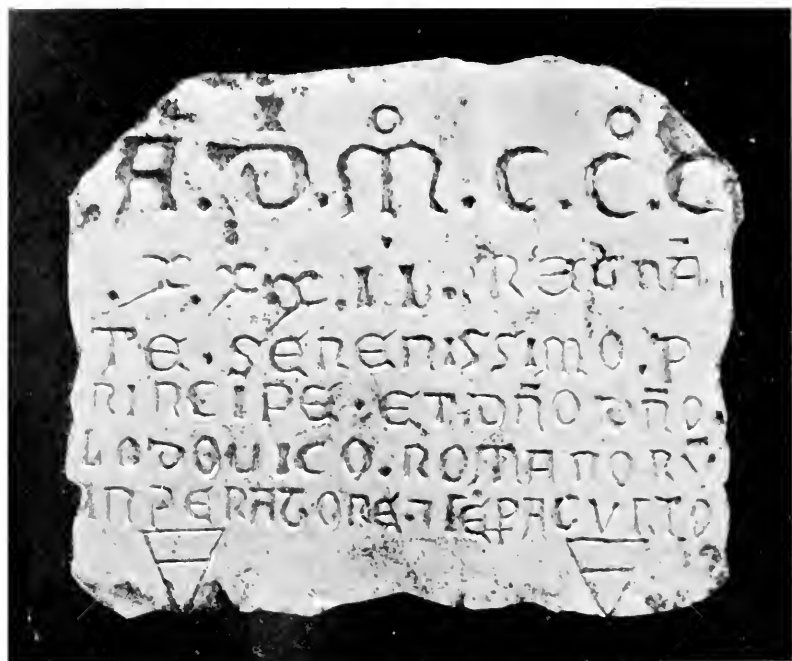 A.D.M.C.C.C
.X.XX.II. REGNA
TE.SERENISSIMO.P
RINCIPE.ET.DNO DNO
LODOUICO.ROMANORV
INPERATORE.